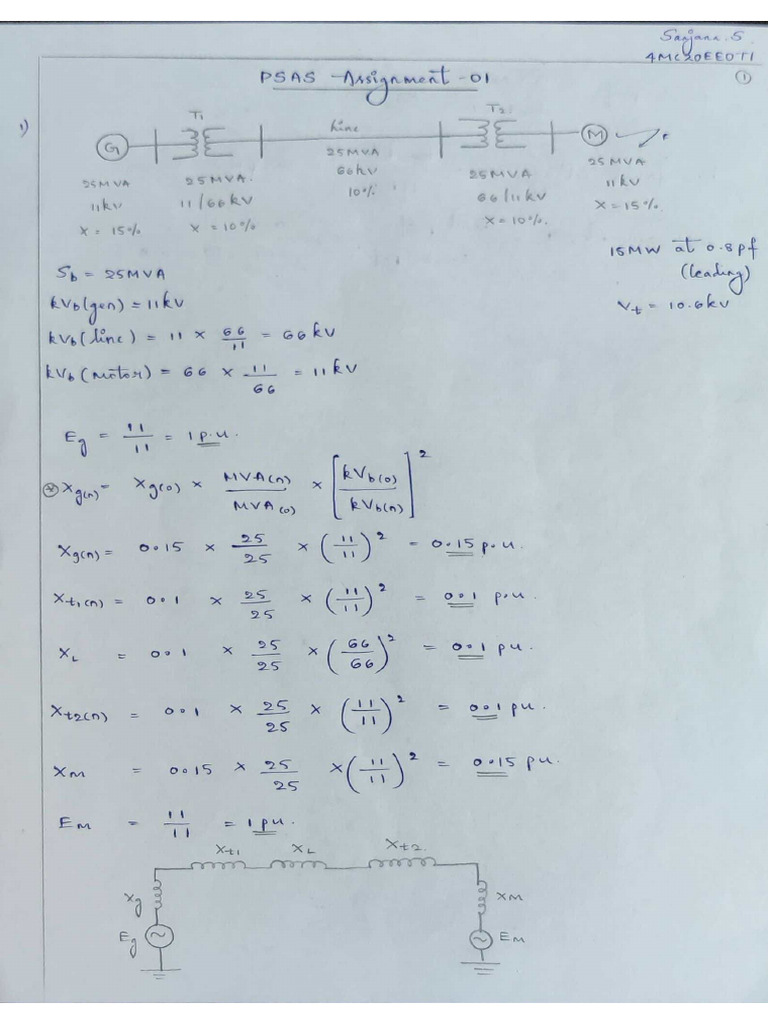 Sanjana. S
4MC20EE0T1
PSAS Assignment - 01
①
1)
T1
T2
G
Line
M
25MVA
11kV
X = 15%
25MVA.
11/66kV
X = 10%
25MVA
66kV
10%
25MVA
66/11kV
X = 10%.
25MVA
11kV
X = 15%.
15MW at 0.8pf
(leading)
Vt = 10.6kV
Sb = 25MVA
kVb(gen) = 11kV
kVb(line) = 11 × 66/11 = 66kV
kVb(motor) = 66 × 11/66 = 11kV
Eg = 11/11 = 1 p.u.
Xg(n) = Xg(o) × MVA(n)/MVA(o) × [kVb(o)/kVb(n)]²
Xg(n) = 0.15 × 25/25 × (11/11)² = 0.15 p.u.
Xt1(n) = 0.1 × 25/25 × (11/11)² = 0.1 p.u.
XL = 0.1 × 25/25 × (66/66)² = 0.1 pu.
Xt2(n) = 0.1 × 25/25 × (11/11)² = 0.1 pu.
XM = 0.15 × 25/25 × (11/11)² = 0.15 pu.
EM = 11/11 = 1 pu.
Xt1 XL Xt2
Xg XM
Eg EM